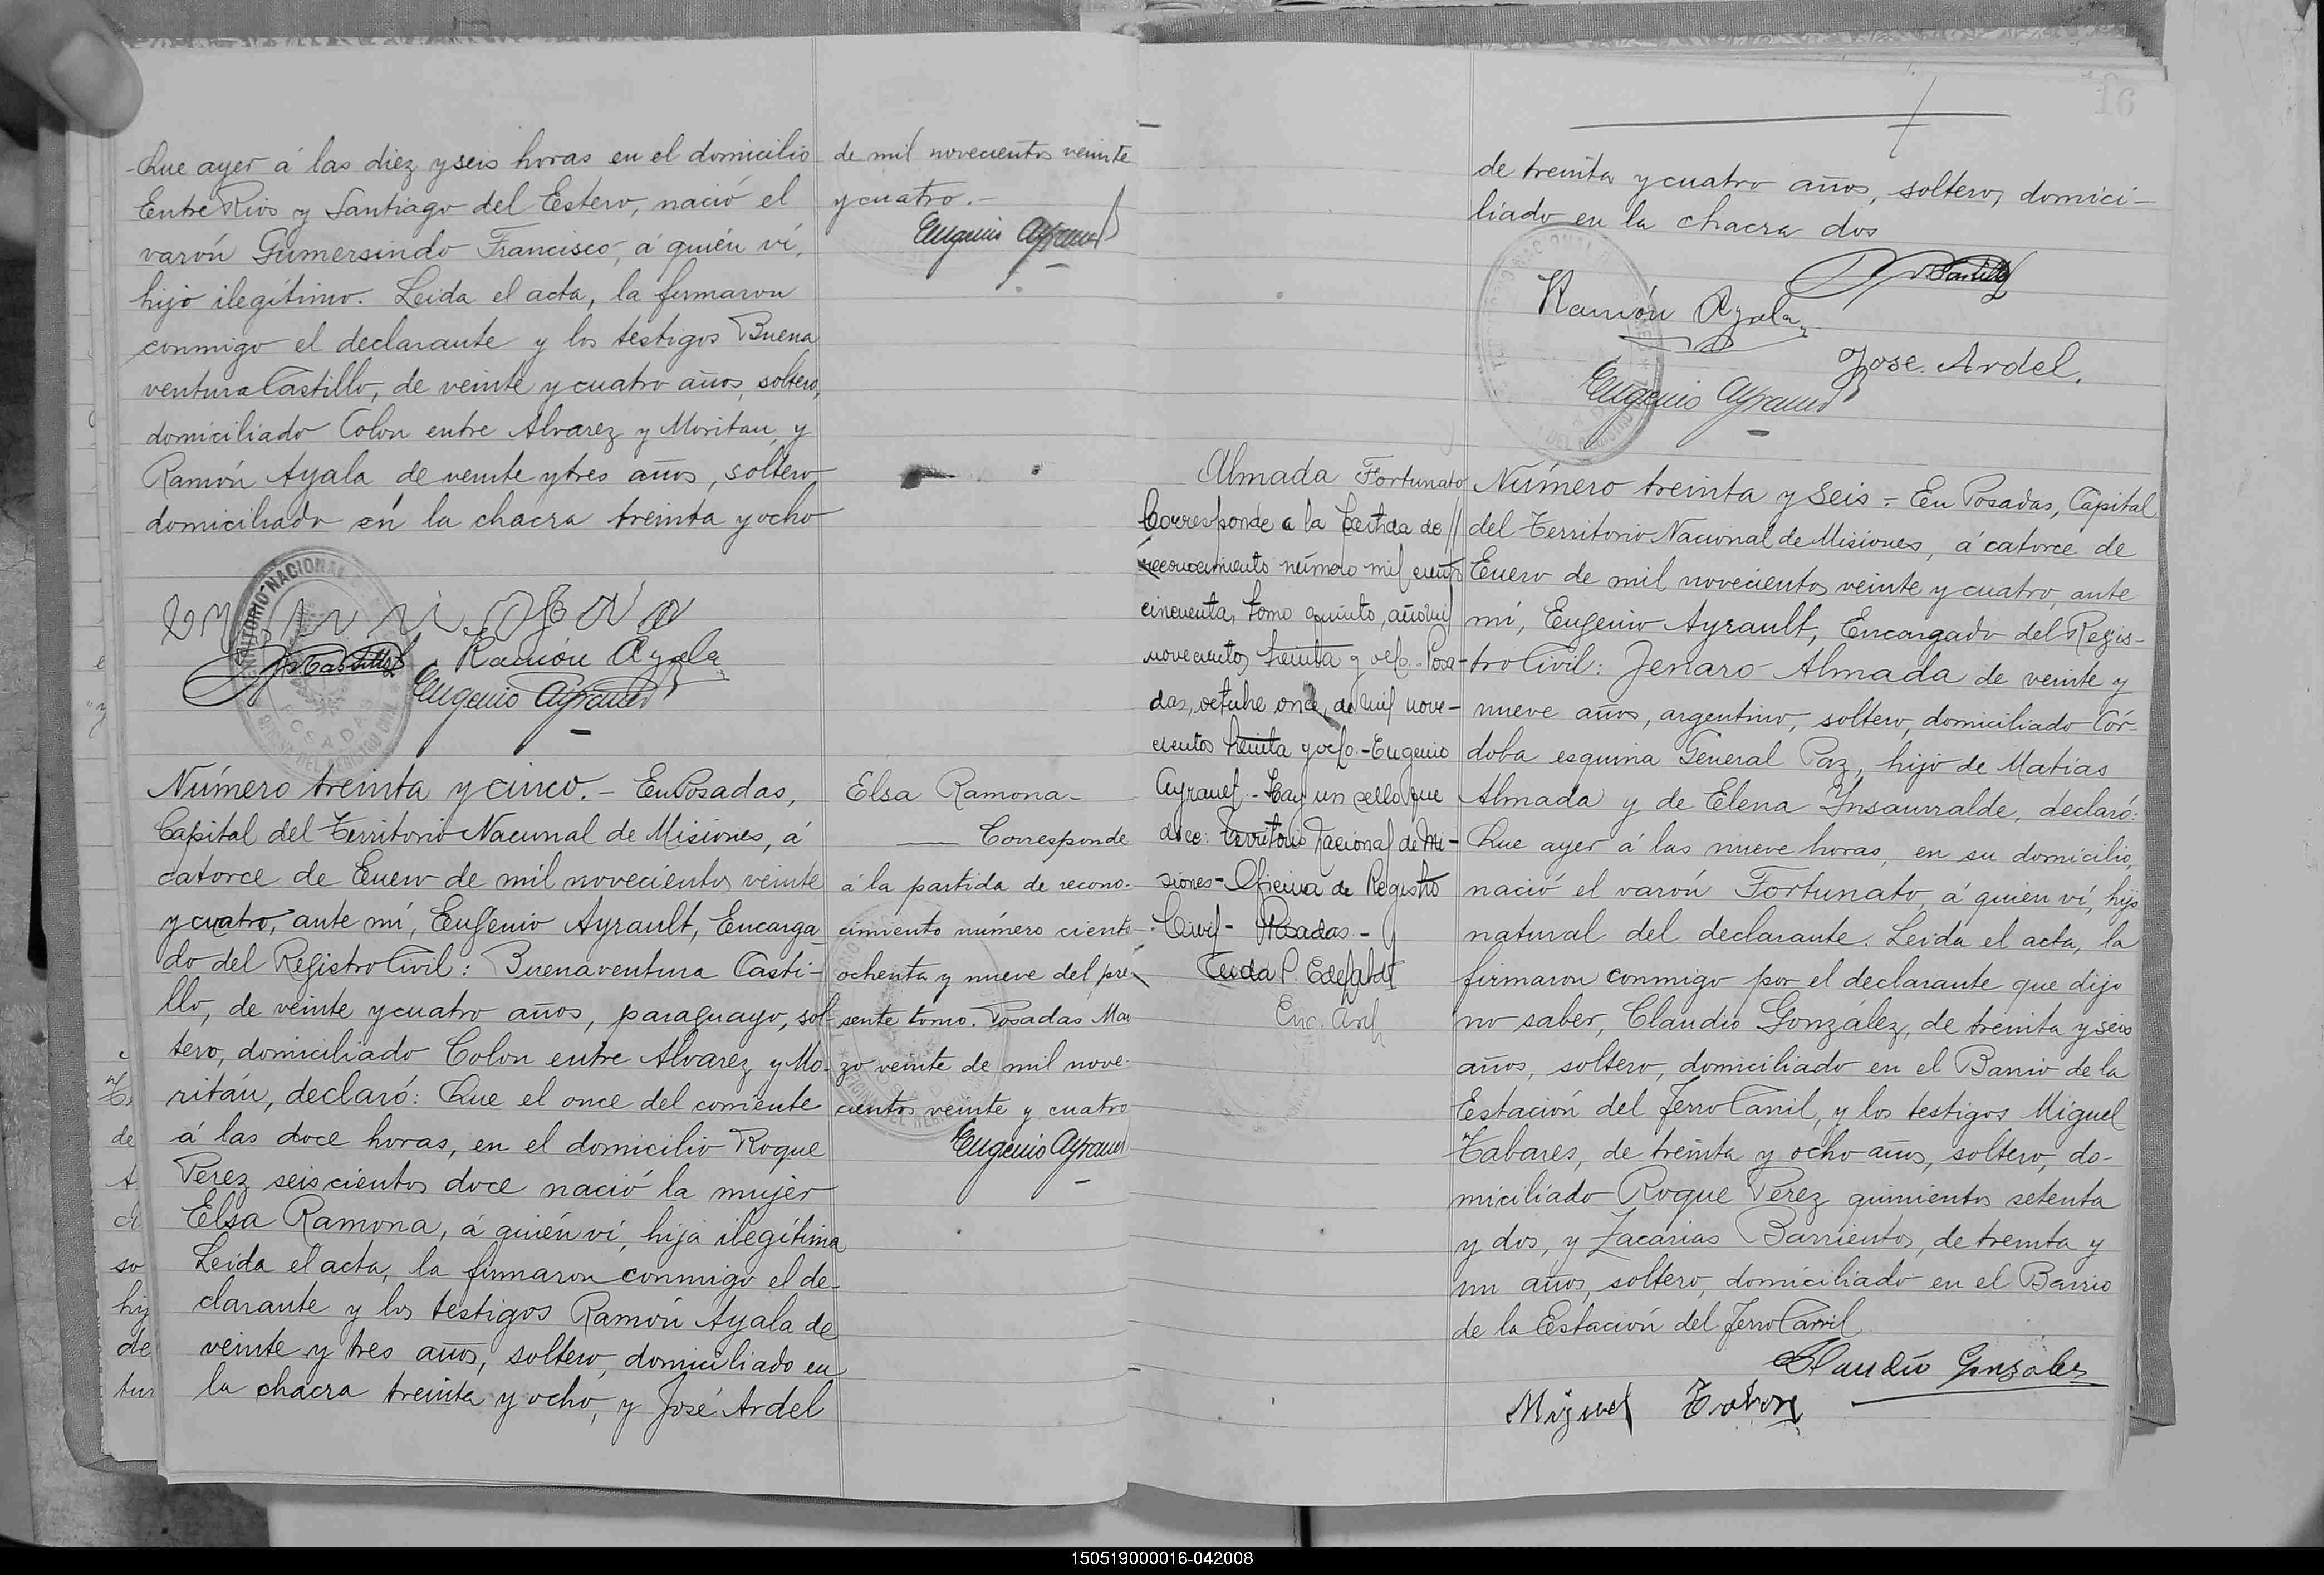 Que ayer á las diez y seis horas en el domicilio
Entre Rios y Santiago del Estero, nació el
varón Gumersindo Francisco, á quién ví,
hijo ilegítimo. Leida el acta, la firmaron
conmigo el declarante y los testigos Buena
ventura Castillo, de veinte y cuatro años, soltero,
domiciliado Colon entre Alvarez y Moritan, y
Ramón Ayala de veinte y tres años, soltero,
domiciliado en la chacra treinta y ocho
de mil novecientos veinte
y cuatro.-
Eugenio Ayrault
TERRITORIO NACIONAL
POSADAS
OFICINA DEL REGISTRO CIVIL
Castillo
Ramón Ayala
Eugenio Ayrault
Número treinta y cinco.- En Posadas,
Capital del Territorio Nacional de Misiones, á
catorce de Enero de mil novecientos veinte
y cuatro, ante mí, Eugenio Ayrault, Encarga
do del Registro Civil: Buenaventura Casti-
llo, de veinte y cuatro años, paraguayo, sol-
tero, domiciliado Colon entre Alvarez y Mo-
ritán, declaró: Que el once del corriente
á las doce horas, en el domicilio Roque
Perez seiscientos doce nació la mujer
Elsa Ramona, á quién ví, hija ilegítima
Leida el acta, la firmaron conmigo el de-
clarante y los testigos Ramón Ayala de
veinte y tres años, soltero, domiciliado en
la chacra treinta y ocho, y José Ardel
Elsa Ramona-
Corresponde
á la partida de recono-
cimiento número ciento
ochenta y nueve del pre-
sente tomo. Posadas Mar
zo veinte de mil nove-
cientos veinte y cuatro
Eugenio Ayrault
16
de treinta y cuatro años, soltero, domici-
liado en la chacra dos
Castillo
Ramón Ayala
Jose Ardel.
Eugenio Ayrault
Almada Fortunato
Corresponde a la partida de
reconocimiento número mil ciento
cincuenta, tomo quinto, año mil
novecientos treinta y ocho.- Posa-
das, octubre once, de mil nove-
cientos treinta y ocho.- Eugenio
Ayrault.- Hay un sello que
dice: Territorio Nacional de Mi-
siones- Oficina de Registro
Civil- Posadas.-
Enc. Arch
Número treinta y seis.- En Posadas, Capital
del Territorio Nacional de Misiones, á catorce de
Enero de mil novecientos veinte y cuatro, ante
mí, Eugenio Ayrault, Encargado del Regis-
tro Civil: Jenaro Almada de veinte y
nueve años, argentino, soltero, domiciliado Cór-
doba esquina General Paz, hijo de Matias
Almada y de Elena Ynsaurralde, declaró:
Que ayer á las nueve horas, en su domicilio,
nació el varón Fortunato, á quién ví, hijo
natural del declarante. Leida el acta, la
firmaron conmigo por el declarante que dijo
no saber, Claudio González, de treinta y seis
años, soltero, domiciliado en el Barrio de la
Estación del FerroCarril, y los testigos Miguel
Tabares, de treinta y ocho años, soltero, do-
miciliado Roque Perez quinientos setenta
y dos, y Zacarias Barrientos, de treinta y
un años, soltero, domiciliado en el Barrio
de la Estación del FerroCarril
Claudio Gonzales
Miguel
150519000016-042008